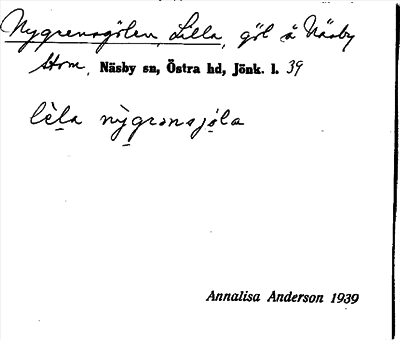 Nygrensgölen, Lilla, göl å Näsby
Hem, Näsby sn, Östra hd, Jönk. l. 39
lèla nỳgrənsjøla
Annalisa Anderson 1939